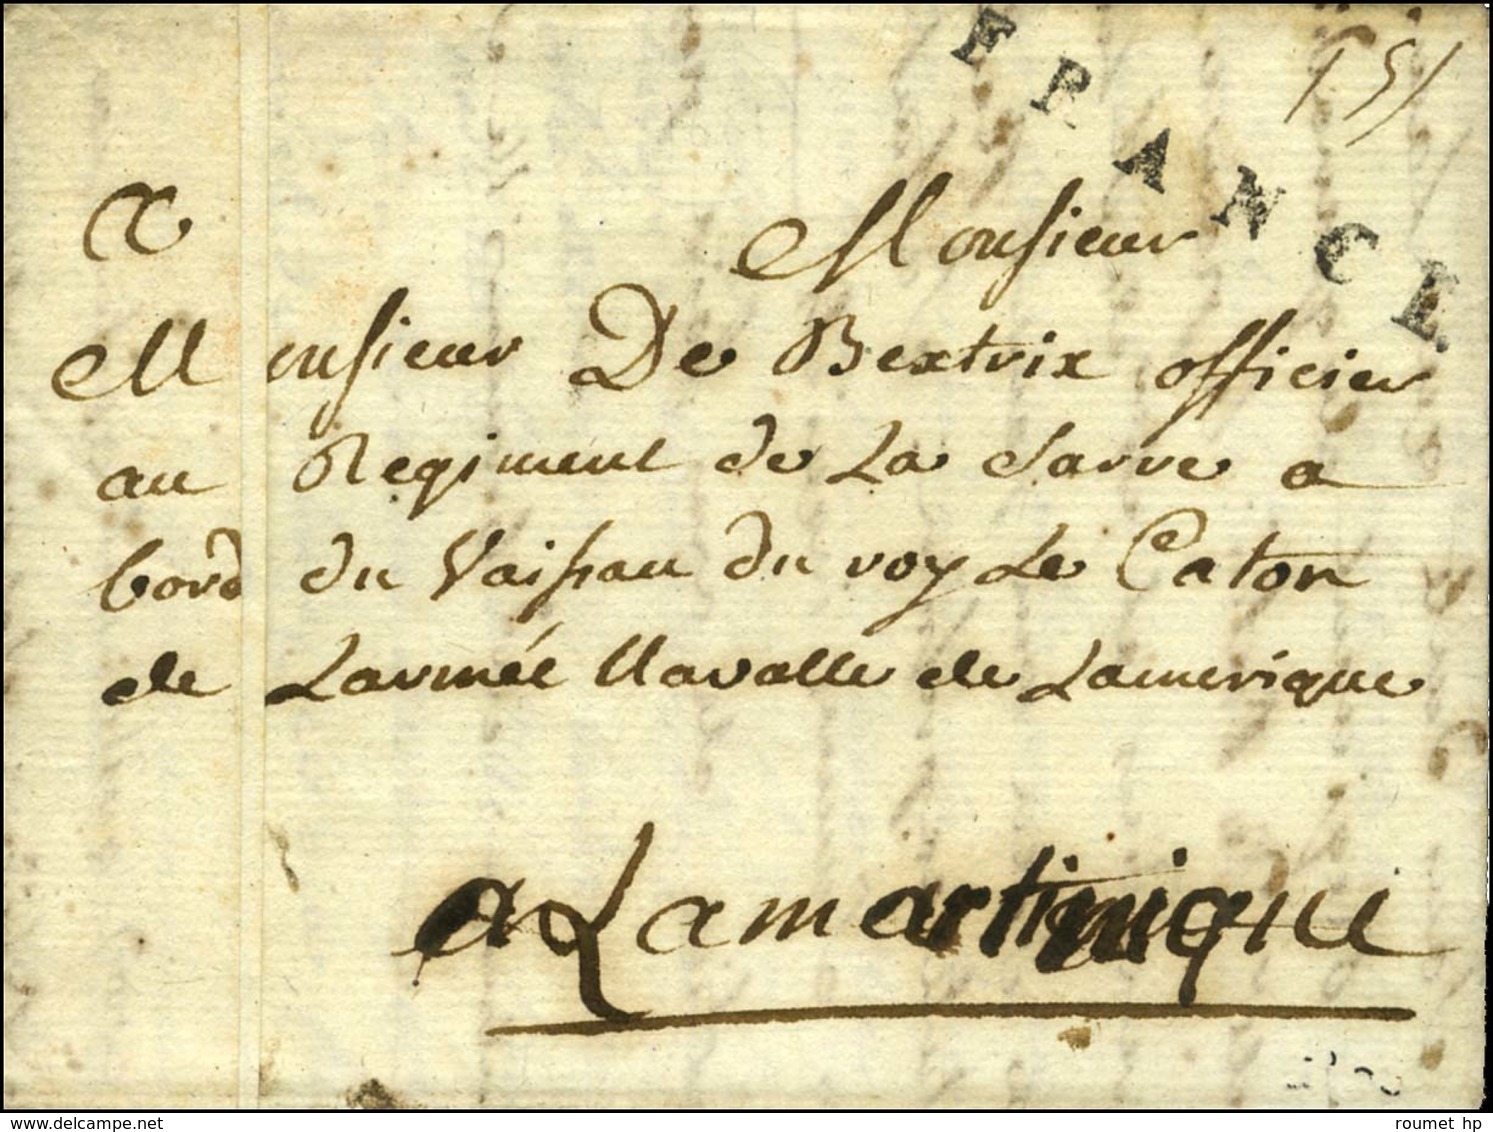 FRANCE
A Monsieur
Monsieur De Bextrix officier
au Regiment de La Sarre a
bord du Vaisseau du roy Le Caton
de Larmée Navalle de Lamerique
a Lamartinique
delcampe.net
roumet hp